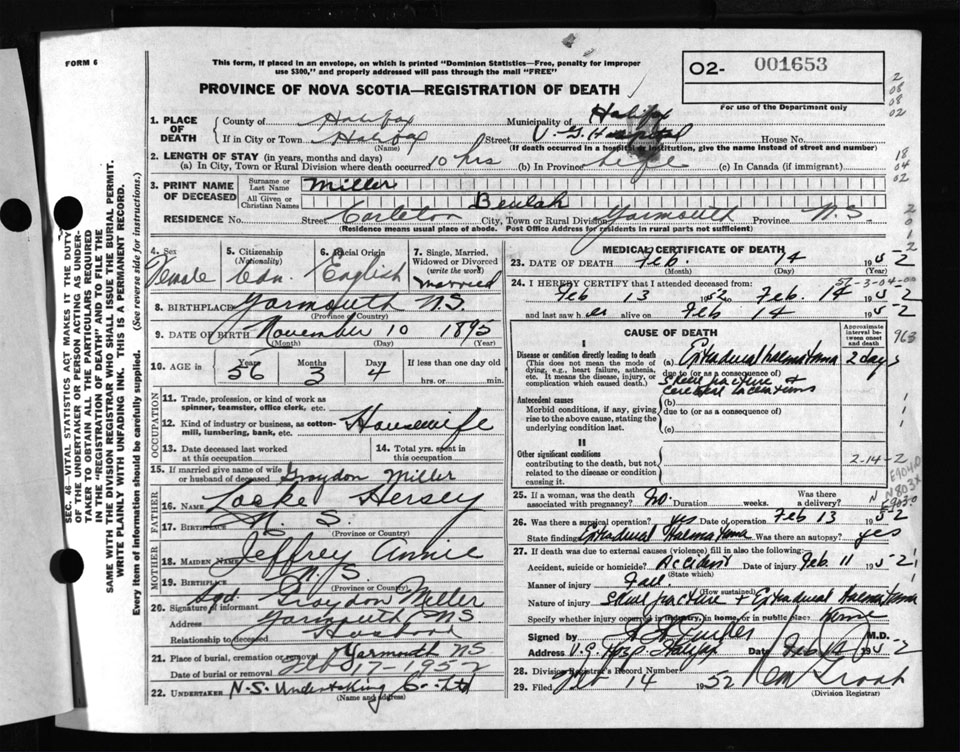 FORM 6
This form, if placed in an envelope, on which is printed "Dominion Statistics—Free, penalty for improper
use $300," and properly addressed will pass through the mail "FREE"
PROVINCE OF NOVA SCOTIA—REGISTRATION OF DEATH
O2- 001653
For use of the Department only
2
08
08
02
18
04
02
1. PLACE OF DEATH County of Halifax Municipality of Halifax
If in City or Town Halifax (Name) Street V. G. Hospital House No.
(If death occurred in a hospital or institution, give the name instead of street and number)
2. LENGTH OF STAY (in years, months and days)
(a) In City, Town or Rural Division where death occurred 10 hrs (b) In Province Life (c) In Canada (if immigrant)
3. PRINT NAME OF DECEASED Surname or Last Name Miller
All Given or Christian Names Beulah
RESIDENCE No. Street Carleton City, Town or Rural Division Yarmouth Province N.S
(Residence means usual place of abode. Post Office Address for residents in rural parts not sufficient)
4. Sex Female
5. Citizenship (Nationality) Can.
6. Racial Origin English
7. Single, Married, Widowed or Divorced (write the word) married
8. BIRTHPLACE Yarmouth N.S.
(Province or Country)
9. DATE OF BIRTH November 10 1895
(Month) (Day) (Year)
10. AGE in Years 56 Months 3 Days 4 If less than one day old
hrs. or min.
OCCUPATION
11. Trade, profession, or kind of work as
spinner, teamster, office clerk, etc.
12. Kind of industry or business, as cotton-
mill, lumbering, bank, etc. Housewife
13. Date deceased last worked
at this occupation
14. Total yrs. spent in
this occupation
15. If married give name of wife
or husband of deceased Graydon Miller
FATHER
16. Name Locke Hersey
17. Birthplace N. S.
(Province or Country)
MOTHER
18. Maiden Name Jeffrey Annie
19. Birthplace N. S.
(Province or Country)
20. Signature of informant sgd. Graydon Miller
Address Yarmouth NS
Relationship to deceased Husband
21. Place of burial, cremation or removal Yarmouth NS
Date of burial or removal Feb 17-1952
22. UNDERTAKER N.S. Undertaking Co- Ltd
(Name and address)
MEDICAL CERTIFICATE OF DEATH
23. DATE OF DEATH Feb. 14 1952
(Month) (Day) (Year)
24. I HEREBY CERTIFY that I attended deceased from:
52-3-04-00
Feb 13 1952 to Feb. 14 1952
and last saw her alive on Feb 14 1952
CAUSE OF DEATH
Approximate interval between onset and death
963
I
Disease or condition directly leading to death
(This does not mean the mode of
dying, e.g., heart failure, asthenia,
etc. It means the disease, injury, or
complication which caused death.)
(a) Extradural haematoma 2 days
due to (or as a consequence of)
Skull fracture +
cerebral lacerations
Antecedent causes
Morbid conditions, if any, giving
rise to the above cause, stating the
underlying condition last.
(b)
due to (or as a consequence of)
(c)
II
Other significant conditions
contributing to the death, but not
related to the disease or condition
causing it.
2-14-2
25. If a woman, was the death
associated with pregnancy? No. Duration weeks. Was there
a delivery?
26. Was there a surgical operation? yes Date of operation Feb 13 1952
State findings Extradural Haematoma Was there an autopsy? yes
27. If death was due to external causes (violence) fill in also the following:
Accident, suicide or homicide? Accident Date of injury Feb. 11 1952
(State which)
Manner of injury Fall.
(How sustained)
Nature of injury Skull fracture + Extradural Haematoma
Specify whether injury occurred in industry, in home, or in public place Home
Signed by M.D.
Address V.G. Hosp. Halifax Date Feb 14 1952
28. Division Registrar's Record Number
29. Filed Feb 14 1952
(Division Registrar)
SEC. 46—VITAL STATISTICS ACT MAKES IT THE DUTY
OF THE UNDERTAKER OR PERSON ACTING AS UNDER-
TAKER TO OBTAIN ALL THE PARTICULARS REQUIRED
IN THE "REGISTRATION OF DEATH" AND TO FILE THE
SAME WITH THE DIVISION REGISTRAR WHO SHALL ISSUE THE BURIAL PERMIT.
WRITE PLAINLY WITH UNFADING INK. THIS IS A PERMANENT RECORD.
Every item of information should be carefully supplied. (See reverse side for instructions.)